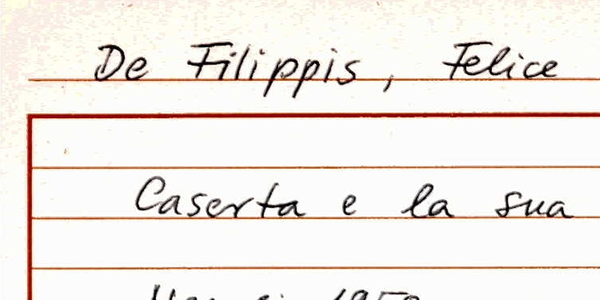 De Filippis, Felice
Caserta e la sua